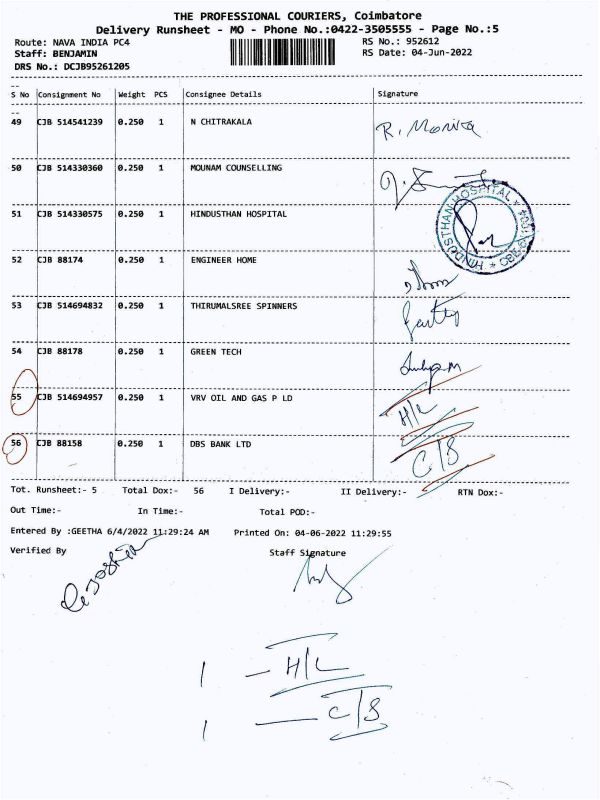 THE PROFESSIONAL COURIERS, Coimbatore
Delivery Runsheet - MO - Phone No.:0422-3505555 - Page No.:5
Route: NAVA INDIA PC4 RS No.: 952612
Staff: BENJAMIN RS Date: 04-Jun-2022
DRS No.: DCJB95261205
S No Consignment No Weight PCS Consignee Details Signature
49 CJB 514541239 0.250 1 N CHITRAKALA R. Monika
50 CJB 514330360 0.250 1 MOUNAM COUNSELLING
51 CJB 514330575 0.250 1 HINDUSTHAN HOSPITAL HINDUSTHAN HOSPITAL
52 CJB 88174 0.250 1 ENGINEER HOME
53 CJB 514694832 0.250 1 THIRUMALSREE SPINNERS
54 CJB 88178 0.250 1 GREEN TECH
55 CJB 514694957 0.250 1 VRV OIL AND GAS P LD H/L
56 CJB 88158 0.250 1 DBS BANK LTD C/S
Tot. Runsheet:- 5 Total Dox:- 56 I Delivery:- II Delivery:- RTN Dox:-
Out Time:- In Time:- Total POD:-
Entered By :GEETHA 6/4/2022 11:29:24 AM Printed On: 04-06-2022 11:29:55
Verified By Staff Signature
1 - H/L
1 - C/S